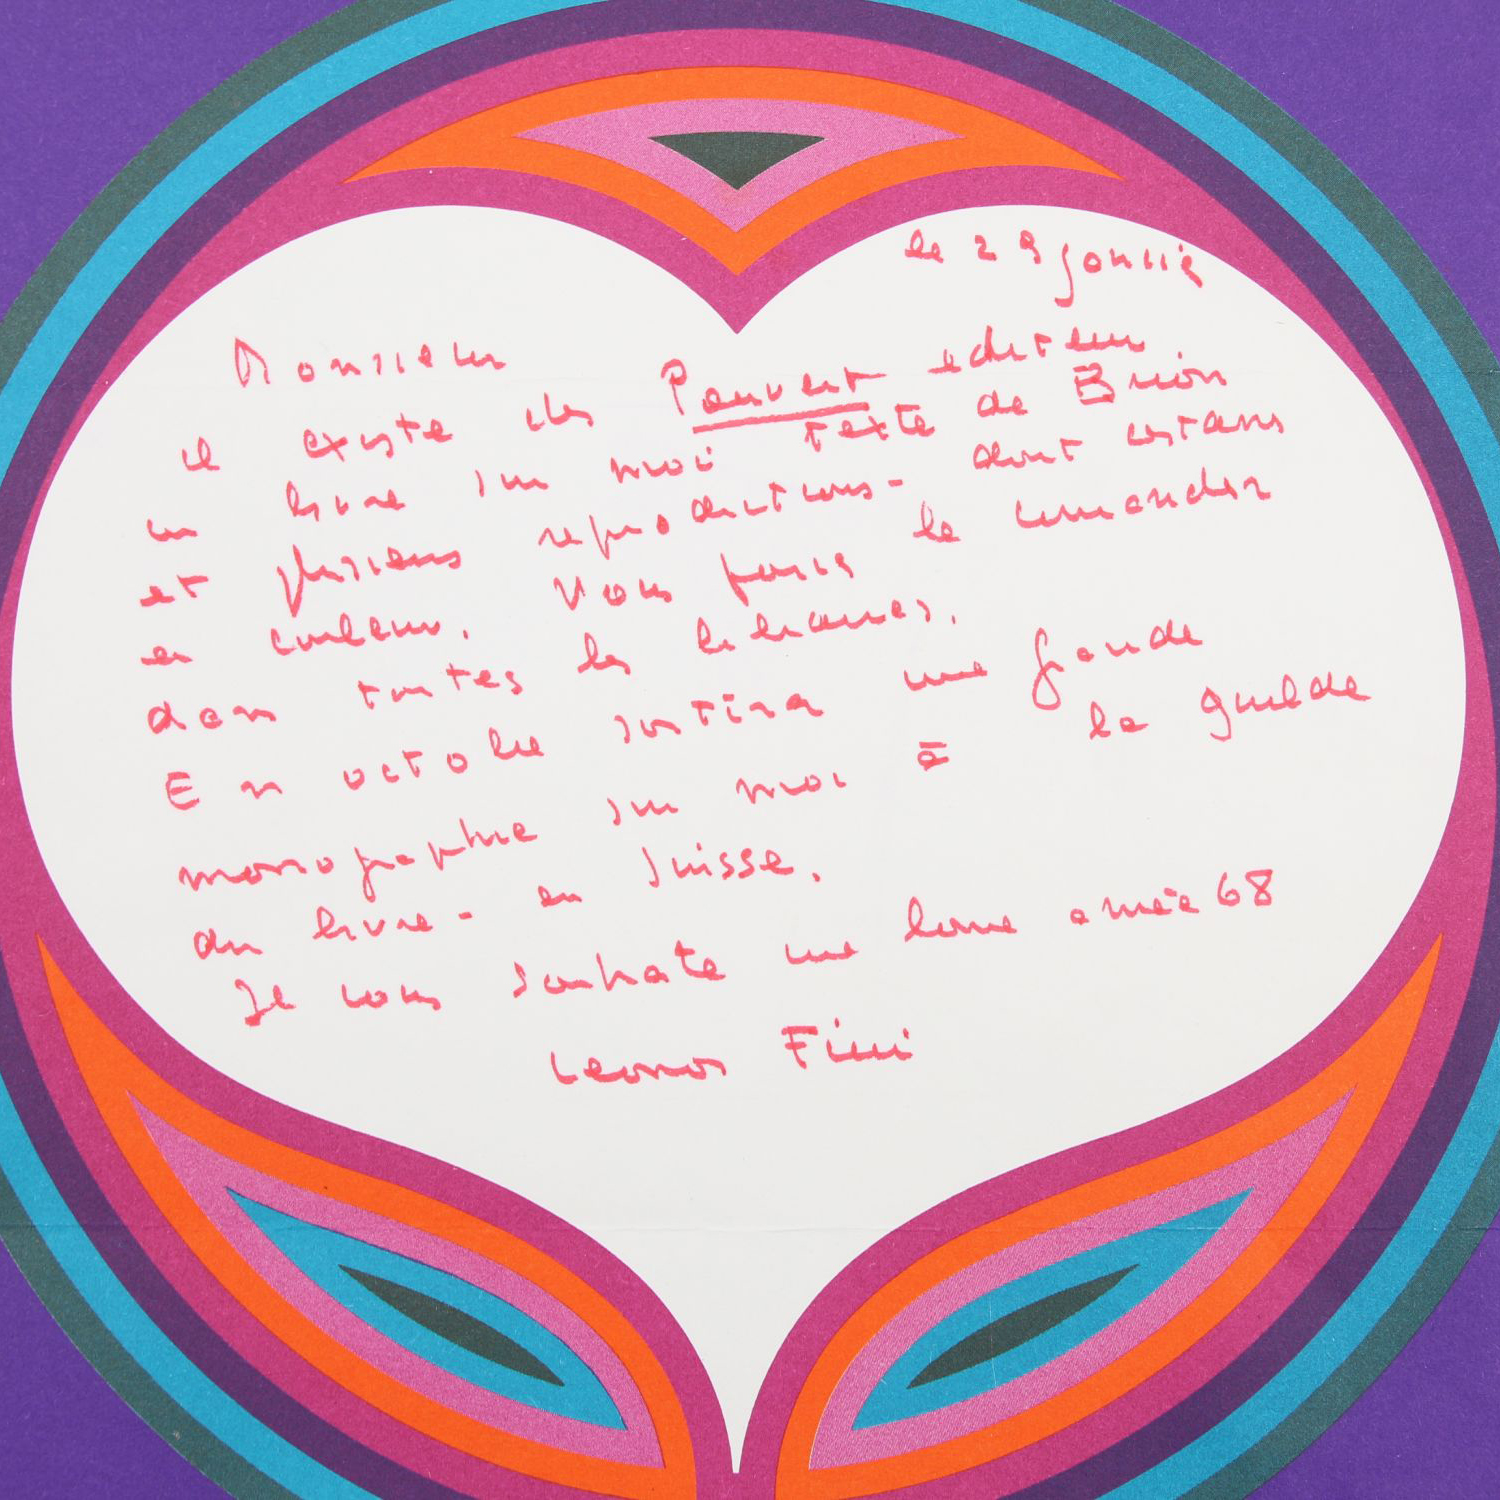 le 29 janvier
Monsieur
il existe chez Pauvert editeur
un livre sur moi texte de Brion
et plusieurs reproductions - dont certains
en couleur. Vous pouvez le commander
dans toutes les librairies.
En octobre sortira une grande
monographie sur moi à la guilde
du livre - en Suisse.
Je vous souhaite une bonne année 68
Leonor Fini